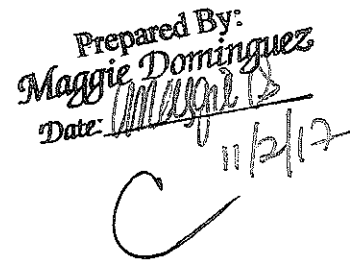 Prepared By:
Maggie Dominguez
Date:
11/2/17
C